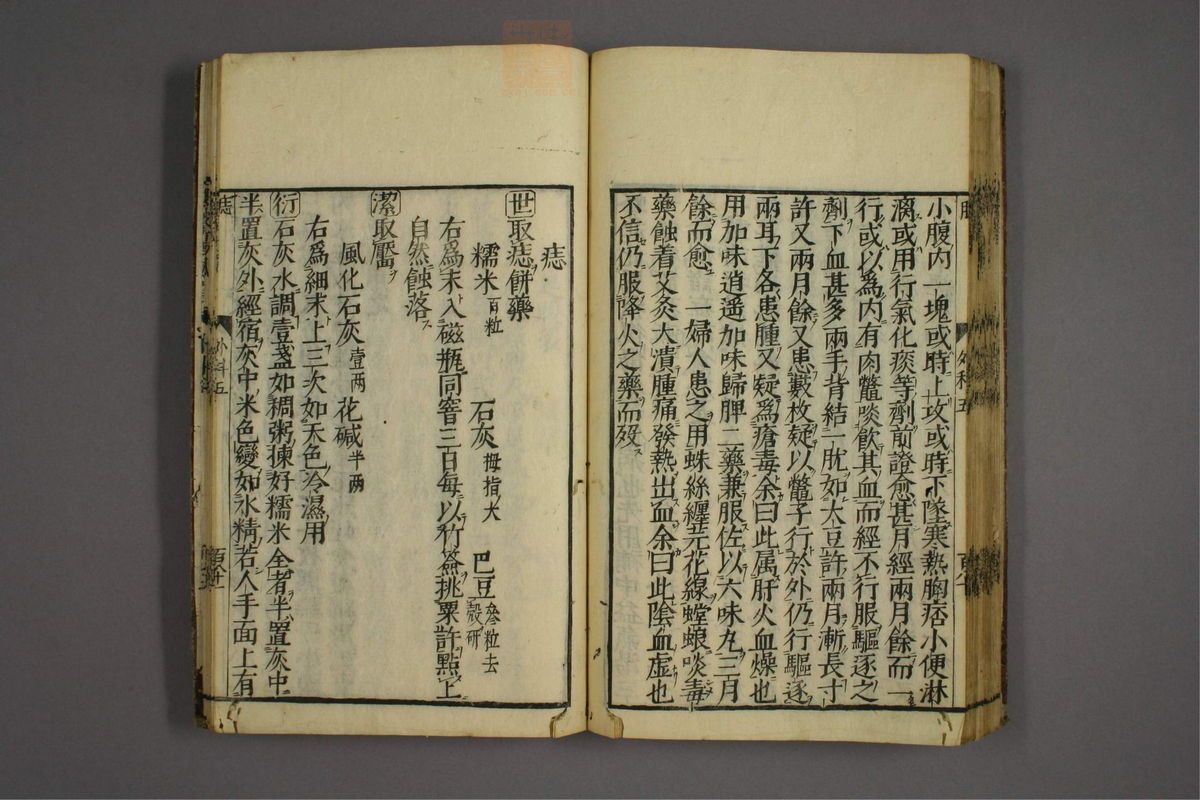 小腹内一塊或時上攻或時下墜寒熱胸痞小便淋
漓或用行氣化痰等劑前證愈甚月經兩月餘而一
行或以爲内有肉鱉啖飲其血而經不行服驅逐之
劑下血甚多兩手背結一肬如大豆許兩月漸長寸
許又兩月餘又患數枚疑以鱉子行於外仍行驅逐
兩耳下各患腫又疑爲瘡毒余曰此属肝火血燥也
用加味逍遥加味歸脾二藥兼服佐以六味丸三月
餘而愈 一婦人患之用蛛絲纏芫花線螳螂啖毒
藥蝕着艾灸大潰腫痛發熱出血余曰此陰血虚也
不信仍服降火之藥而歿
外科五
痣
世取痣餅藥
糯米百粒 石灰拇指大 巴豆參粒去殻研
右爲末入磁瓶同窨三日毎以竹簽挑粟許點上
自然蝕落
潔取靨
風化石灰壹两 花碱半两
右爲細末上三次如天色冷濕用
衍石灰水調壹盞如稠粥揀好糯米全者半置灰中
半置灰外經宿灰中米色變如水精若人手面上有
痣
外科五